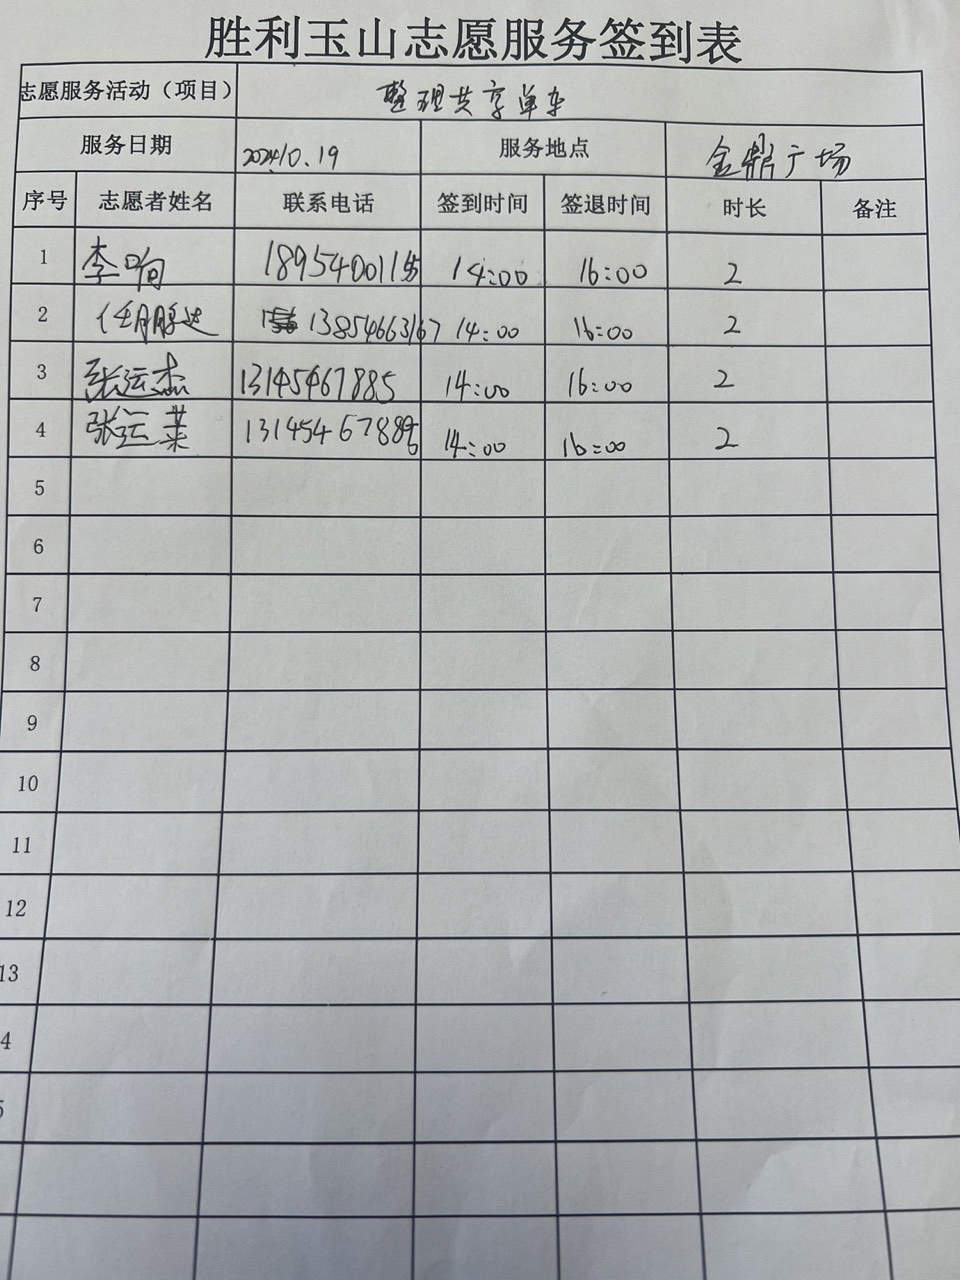 胜利玉山志愿服务签到表
志愿服务活动（项目） 整理共享单车
服务日期 2024.10.19 服务地点 金鼎广场
序号 志愿者姓名 联系电话 签到时间 签退时间 时长 备注
1 李响 14:00 16:00 2
2 任鹏达 13854663167 14:00 16:00 2
3 张运杰 13145467885 14:00 16:00 2
4 张运莱 14:00 16:00 2
5
6
7
8
9
10
11
12
13
4
5